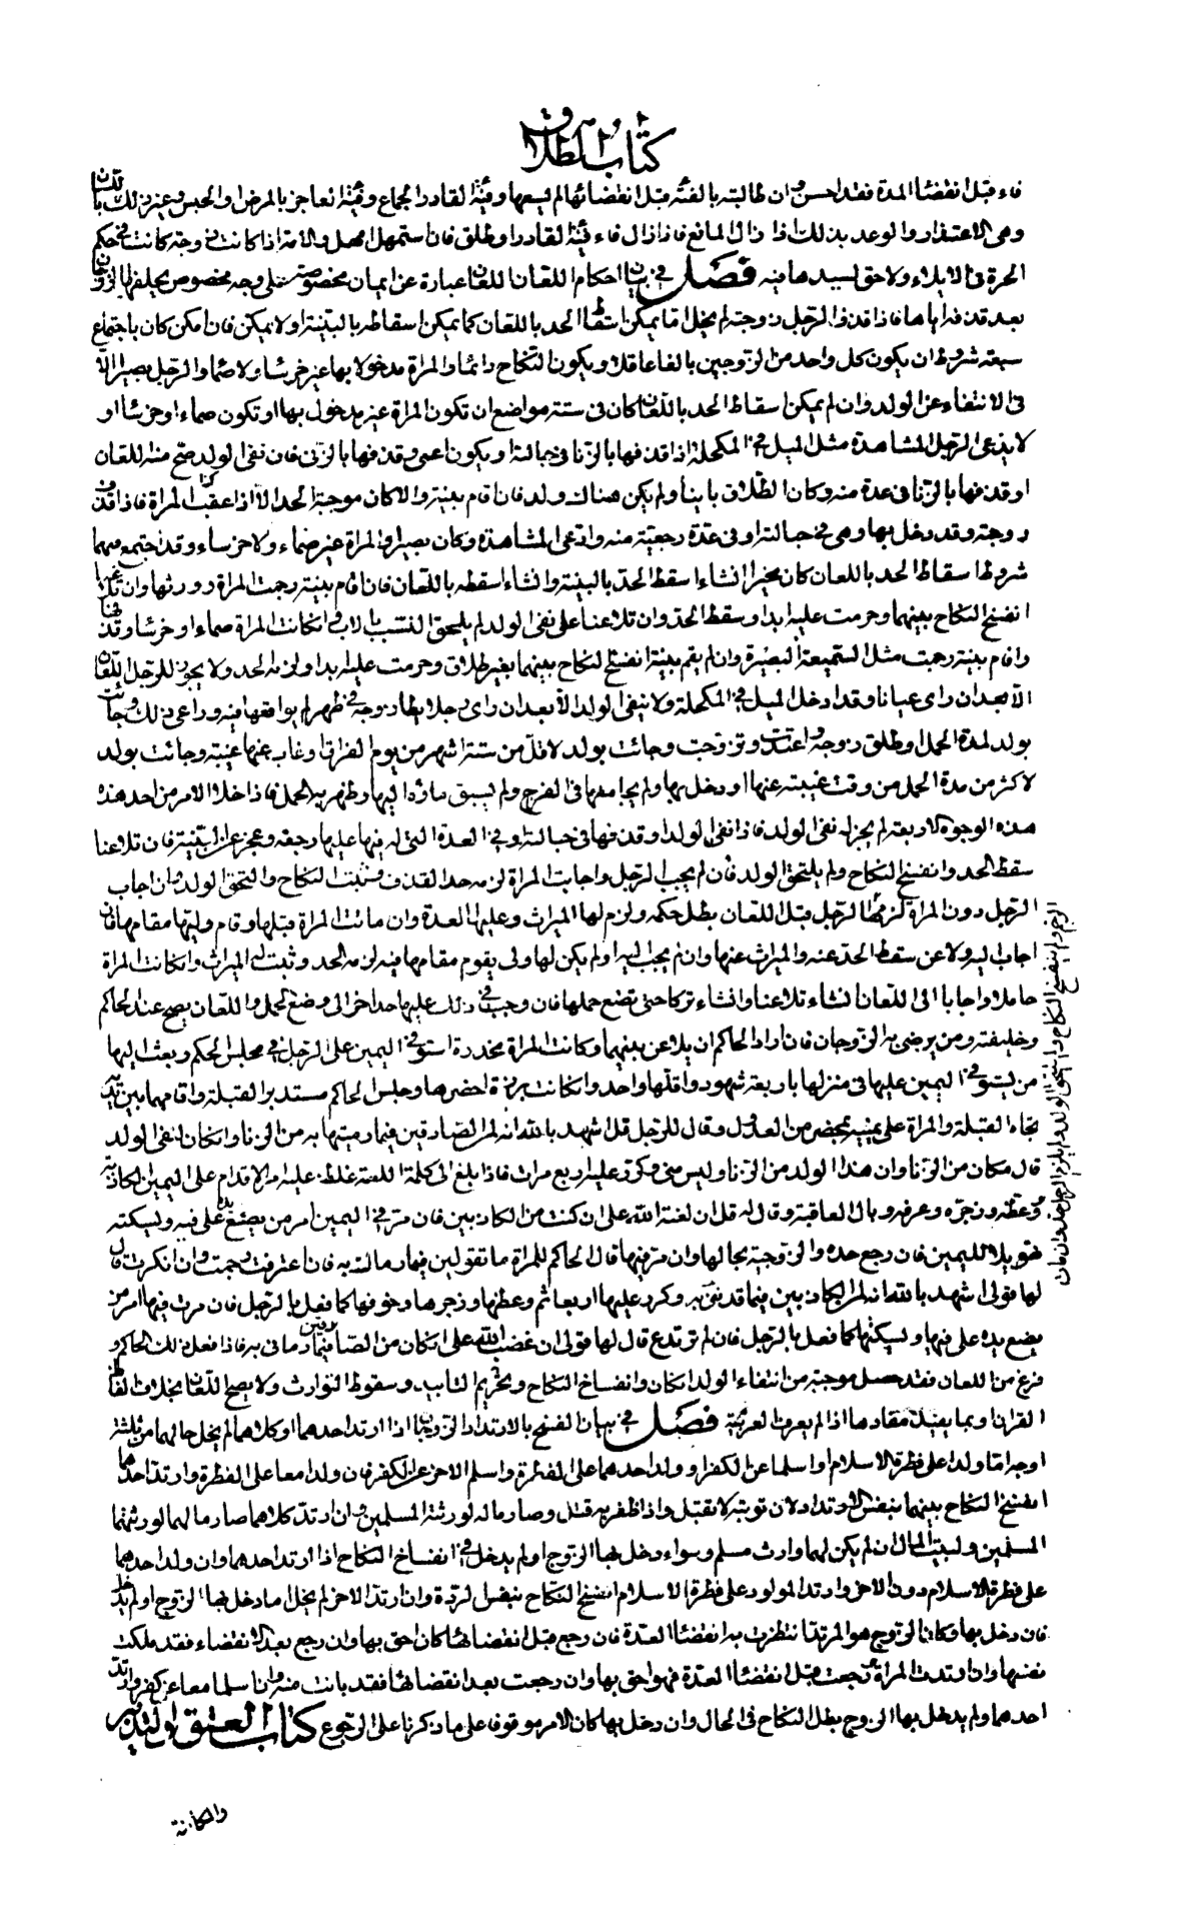 كتاب الطلاق
فاء قبل انقضاء المدة فقد احسن وان طالبته بالفئة قبل انقضائها لم يسعها وفيئة القادر الجماع وفيئة العاجز بالمرض او الحبس وغير ذلك باللسان
وهي الاعتذار والوعد بذلك اذا زال المانع فاذا زال فاء فيئة القادر او طلق فان استمهل امهل والامة اذا كانت زوجة كانت في حكم
الحرة في الايلاء ولا حق لسيدها فيه فصل في بيان احكام اللعان اللعان عبارة عن ايمان مخصوصة على وجه مخصوص يحلف بها الزوجان
بعد قذفه اياها فاذا قذف الرجل زوجته لم يخل اما يمكن اسقاط الحد باللعان كما يمكن اسقاطه بالبينة او لا يمكن فان امكن كان باجتماع
سبعة شروط ان يكون كل واحد من الزوجين بالغا عاقلا ويكون النكاح دائما والمراة مدخولا بها غير خرساء ولا صماء والرجل بصيرا الا
في الانتفاء عن الولد وان لم يمكن اسقاط الحد باللعان كان في ستة مواضع ان تكون المراة غير مدخول بها او تكون صماء او خرساء او
لا يدعي الرجل المشاهدة مثل الميل في المكحلة اذا قذفها بالزنا في حبالته او يكون اعمى وقذفها بالزنى فان نفى الولد صح منه اللعان
او قذفها بالزنا في عدة منه وكان الطلاق باينا ولم يكن هناك ولد فان اقام بينة والا كان موجبه الحد الا اذا عفت المراة فاذا قذف
زوجته وقد دخل بها وهي في حبالته او في عدة رجعية منه وادعى المشاهدة وكان بصيرا والمراة غير صماء ولا خرساء وقد اجتمع فيهما
شروط اسقاط الحد باللعان كان مخيرا ان شاء اسقط الحد بالبينة وان شاء اسقطه باللعان فان اقام بينة رجمت المراة وورثها وان تلاعنا
انفسخ النكاح بينهما وحرمت عليه ابدا وسقط الحد وان تلاعنا على نفي الولد لم يلحق النسب بالاب وان كانت المراة صماء او خرساء وقذفها
واقام بينة رجمت مثل السميعة البصيرة وان لم يقم بينة انفسخ النكاح بينهما بغير طلاق وحرمت عليه ابدا ولزمه الحد ولا يجوز للرجل اللعان
الا بعد ان راى عيانا وقد ادخل الميل في المكحلة ولا ينفى الولد الا بعد ان راى رجلا يطا زوجه في طهر لم يواقعها فيه وراعى ذلك وجائت
بولد لمدة الحمل او طلق زوجه واعتدت وتزوجت وجائت بولد لاقل من ستة اشهر من يوم الفراق او غاب عنها غيبة وجائت بولد
لاكثر من مدة الحمل من وقت غيبته عنها او دخل بها ولم يجامعها في الفرج ولم يسبق ماؤه اليها وظهر به الحمل فاذا خلا الامر من احد هذه
هذه الوجوه الاربعة لم يجز له نفي الولد فاذا نفى الولد او قذفها في حبالته او في العدة التي له فيها عليها رجعة وعجز عن البينة فان تلاعنا
سقط الحد وانفسخ النكاح ولم يلتحق الولد فان لم يجب الرجل واجابت المراة لزمه حد القذف وثبت النكاح والتحق الولد وان اجاب
الرجل دون المراة لزمها الرجل قبل اللعان بطل حكمه ولزم لها الميراث وعليها العدة وان ماتت المراة قبلها وقام وليها مقامها فان
اجاب اليه ولاعن سقط الحد عنه والميراث عنها وان لم يجب اليه او لم يكن لها ولي يقوم مقامها فيه لزمه الحد وثبت له الميراث وان كانت المراة
حاملا واجابا الى اللعان ان شاء تلاعنا وان شاء تركا حتى تضع حملها فان وجب في ذلك عليها حد اخر الى وضع الحمل واللعان يصح عند الحاكم
وخليفته ومن يرضى به الزوجان فان اراد الحاكم ان يلاعن بينهما وكانت المراة مخدرة استوفى اليمين على الرجل في مجلس الحكم وبعث اليها
من يستوفي اليمين عليها في منزلها باربعة شهود واقلها واحد وان كانت برزة احضرها وجلس الحاكم مستدبر القبلة واقامهما بين يديه
تجاه القبلة والمراة على يمينه بمحضر من العدول وقال للرجل قل اشهد بالله انه لمن الصادقين فيما رميتها به من الزنا وان كان نفى الولد
قال مكان من الزنا وان هذا الولد من الزنا وليس مني وكرر عليه اربع مرات فاذا بلغ الى كلمة اللعنة غلظ عليه مرة الاقدام على اليمين الكاذبة
ووعظه وزجره وعرفه وبال العاقبة وقال له قل ان لعنة الله علي ان كنت من الكاذبين فان مر في اليمين امر من يضع يده على فيه ويسكته
تهويلا لليمين فان رجع حده والزوجية بحالها وان مر فيها قال الحاكم للمراة ما تقولين فيما رماك به فان اعترفت رجمت وان انكرت قال
لها قولي اشهد بالله انه لمن الكاذبين فيما قذفني به وكرر عليها اربعا ثم وعظها وزجرها وخوفها كما فعل بالرجل فان مرت فيها امر من
يضع يده على فيها ويسكتها كما فعل بالرجل فان لم ترتدع قال لها قولي ان غضب الله علي ان كان من الصادقين فيما رماني به فاذا فعل ذلك الحاكم و
فرغ من اللعان فقد حصل موجبه من انتفاء الولد ان كان وانفساخ النكاح وتحريم التابيد وسقوط التوارث ولا يصح اللعان بخلاف لفظ
القران او بما يفيد مفادها اذا لم يعرف العربية فصل في بيان الفسخ بالارتداد الزوجان اذا ارتد احدهما او كلاهما لم يخل حالهما من ثلثة
اوجه اما ولدا على فطرة الاسلام او اسلما عن الكفر او ولد احدهما على الفطرة واسلم الاخر عن الكفر فان ولدا معا على الفطرة وارتد احدهما
انفسخ النكاح بينهما بنفس الارتداد لان توبته لا تقبل واذا ظفر به قتل وصار ماله لورثة المسلمين وان ارتد كلاهما صار مالهما لورثتهما
المسلمين ولبيت المال ان لم يكن لهما وارث مسلم وسواء دخل بها الزوج او لم يدخل في انفساخ النكاح اذا ارتد احدهما وان ولد احدهما
على فطرة الاسلام دون الاخر وارتد المولود على فطرة الاسلام انفسخ النكاح بنفس الردة وان ارتد الاخر لم يخل اما دخل بها الزوج او لم يدخل
فان دخل بها وكان الزوج هو المرتد انتظرت به انقضاء العدة فان رجع قبل انقضائها كان احق بها وان رجع بعد الانقضاء فقد ملكت
نفسها وان ارتدت المراة رجعت قبل انقضاء العدة فهو احق بها وان رجعت بعد انقضائها فقد بانت منه وان اسلما معا عن كفر وارتد
احدهما ولم يدخل بها الزوج بطل النكاح في الحال وان دخل بها كان الامر موقوفا على ما ذكرنا على الرجوع كتاب العتق والتدبير
والمكاتبة
الرجم ولم ينفسخ النكاح والتحق الولد ولم يلزم الرجل حد وان مات